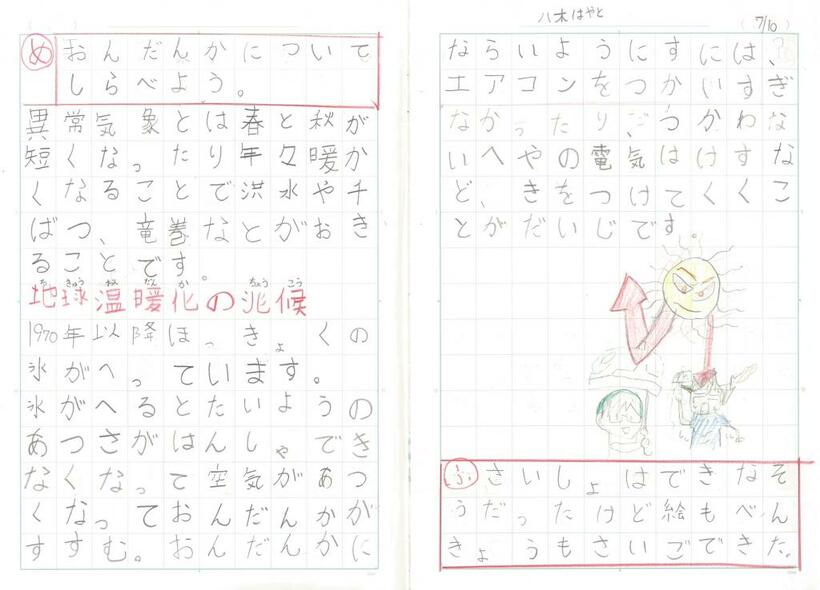 め
おんだんかについて
しらべよう。
異常気象とは春と秋が
短くなったり年々暖か
くなることで洪水や千
ばつ、竜巻などがおき
ることです。
ちきゅう おん だん か ちょう こう
地球温暖化の兆候
1970年以降ほっきょくの
氷がへっています。
氷がへるとたいようの
あつさがはんしゃでき
なくなって空気があつ
くなっておんだんかが
すすむ。おんだんかに
八木はやと
7/10
ならいようにすには、
エアコンをつかいすぎ
なかったり、つかわな
いへやの電気はけすな
ど、きをつけてくくこ
とがだいじです。
ふ
さいしょはできなそ
うだったけど絵もべん
きょうもさいごできた。